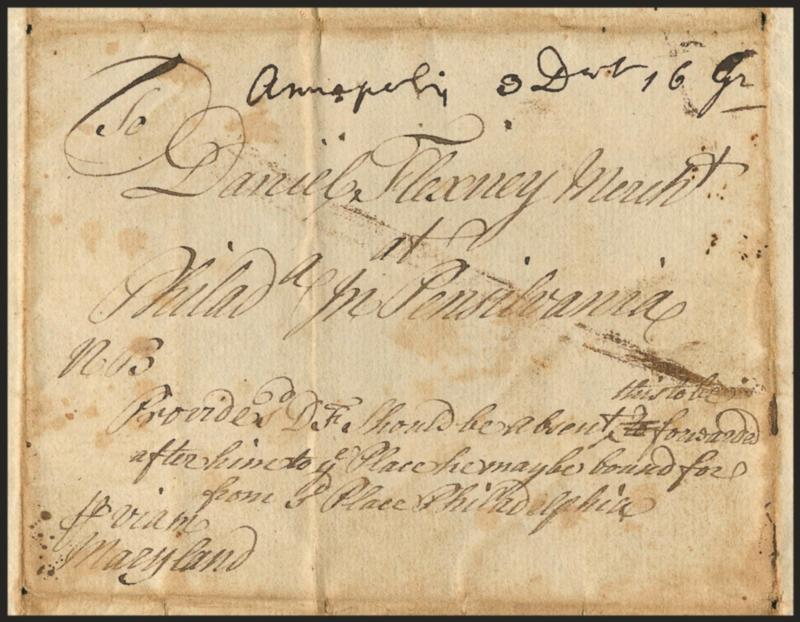 Annapolis 3 Dwt 16 Gr
To
Daniel Flexney Mercht
at
Philada In Pensilvania
N B
this to be
Provided D. F. Should be absent forwarded
after him to ye Place he may be bound for
from sd Place Philadelphia
pr viam
Maryland